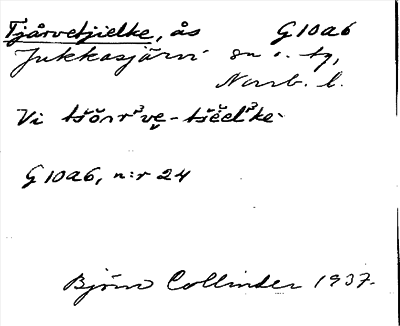 Tjårvetjielke, ås G 10 a 6
Jukkasjärvi sn o. tg,
Norrb. l.
Vi tšŏnr³ve̬-tšĕĕl³ke·
G 10 a 6, n:r 24
Björn Collinder 1937.